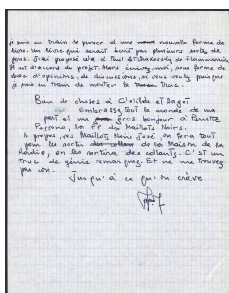 je suis en train de penser à une nouvelle forme de
livre. Un livre qui serait écrit par plusieurs sortes de
gens. J'ai proposé cela à Paul de Flammarion
et est d'accord du projet. Alors écrivez-moi, sous forme de
choc d'opinions, de discussions, si vous voulez, puisque
je suis en train de monter le Truc.
Bien de choses à Clotilde et
embrasse tout le monde de ma
part et un gros bonjour à Paulette
la des Maillots Noirs.
A propos, vos Maillots Noirs José on fera tout
pour les sortir de la Maison de la
Radio, on les sortira des collants. C'est un
truc de génie remarquez. Et ne me trouvez
pas con.
Jusqu'à ce qu'on crève